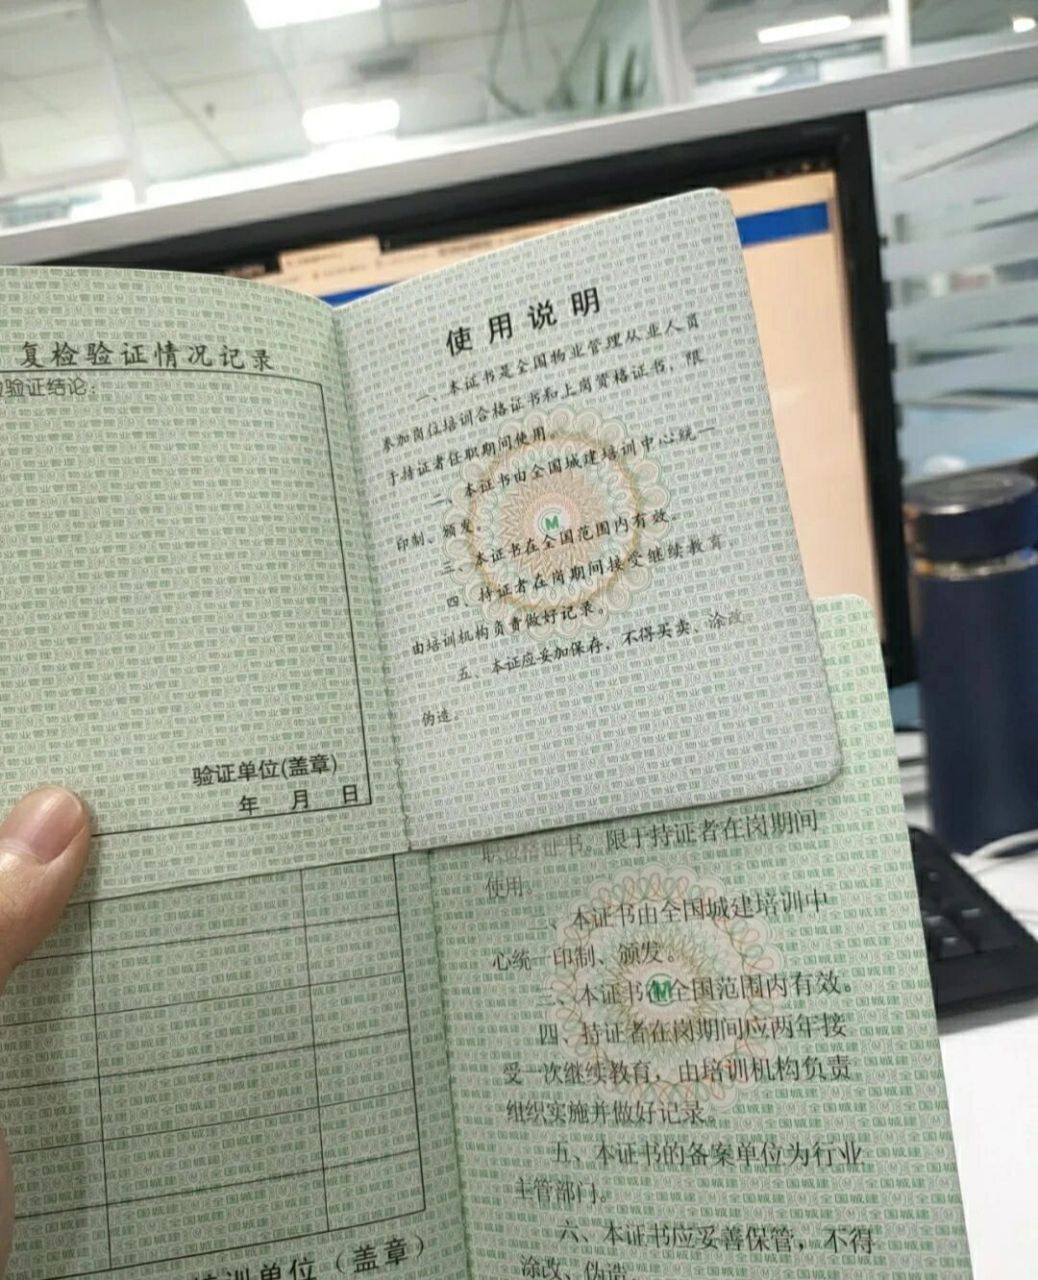 复检验证情况记录
验证结论:
验证单位(盖章)
年 月 日
使用说明
一、本证书是全国物业管理从业人员
参加岗位培训合格证书和上岗资格证书，限
于持证者任职期间使用。
二、本证书由全国城建培训中心统一
印制、颁发。
三、本证书在全国范围内有效。
四、持证者在岗期间接受继续教育，
由培训机构负责做好记录。
五、本证应妥加保存，不得买卖、涂改、
伪造。
培训单位（盖章）
职资格证书。限于持证者在岗期间
使用。
二、本证书由全国城建培训中
心统一印制、颁发。
三、本证书在全国范围内有效。
四、持证者在岗期间应两年接
受一次继续教育，由培训机构负责
组织实施并做好记录。
五、本证书的备案单位为行业
主管部门。
六、本证书应妥善保管，不得
涂改、伪造。